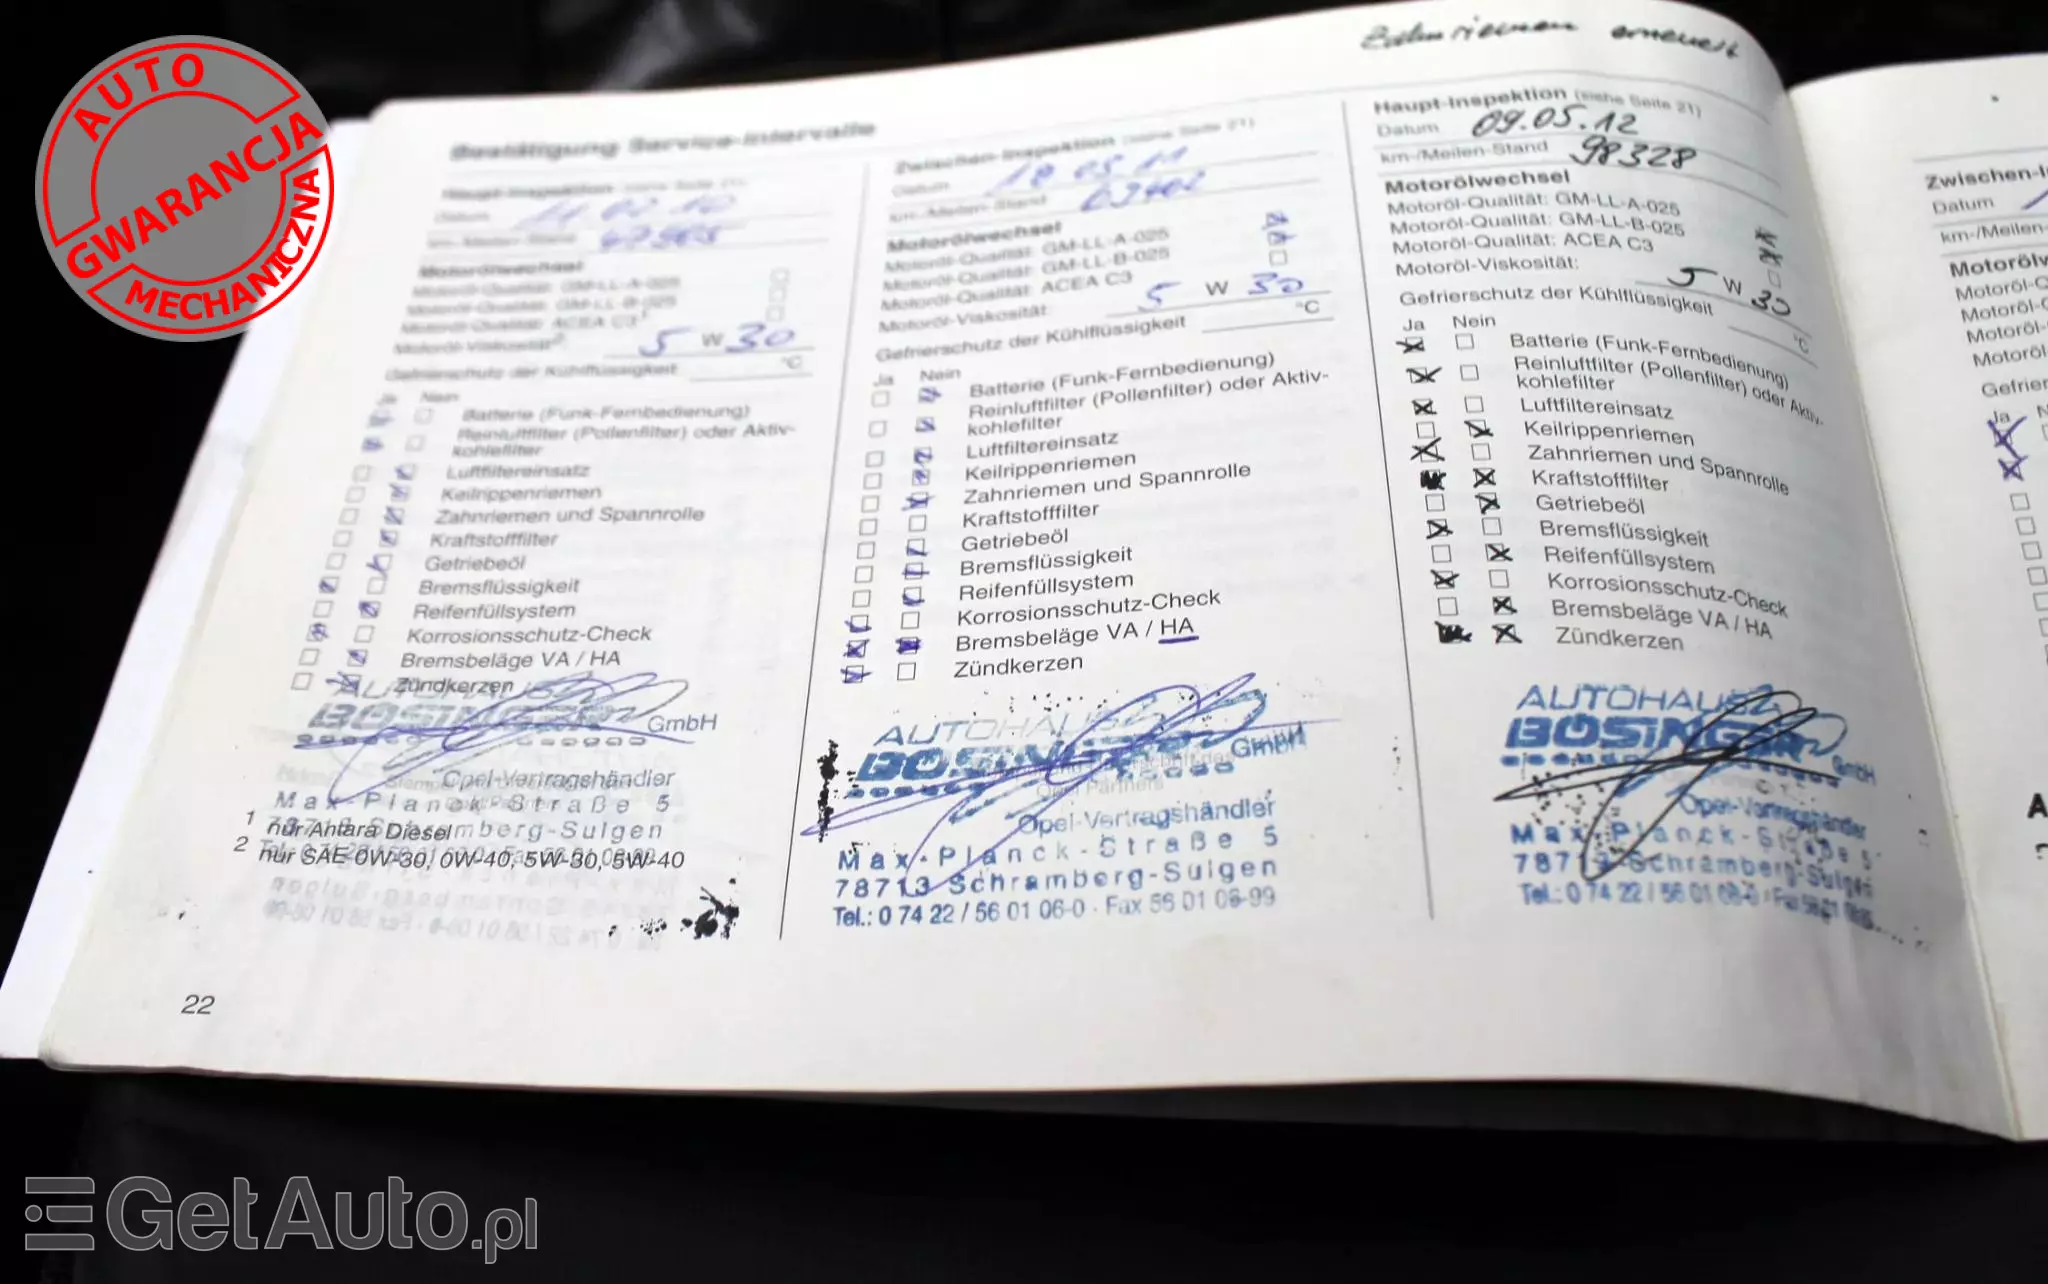 AUTO
GWARANCJA
MECHANICZNA
Zahnriemen erneuert
Bestätigung Service-Intervalle
Haupt-Inspektion (siehe Seite 21)
Datum
km-/Meilen-Stand
Motorölwechsel
Motoröl-Qualität: GM-LL-A-025
Motoröl-Qualität: GM-LL-B-025
Motoröl-Qualität: ACEA C3 1
Motoröl-Viskosität 2: 5 W 30
Gefrierschutz der Kühlflüssigkeit °C
Ja Nein
Batterie (Funk-Fernbedienung)
Reinluftfilter (Pollenfilter) oder Aktiv-
kohlefilter
Luftfiltereinsatz
Keilrippenriemen
Zahnriemen und Spannrolle
Kraftstofffilter
Getriebeöl
Bremsflüssigkeit
Reifenfüllsystem
Korrosionsschutz-Check
Bremsbeläge VA / HA
Zündkerzen
AUTOHAUS
BÖSINGER GmbH
Opel-Vertragshändler
Max-Planck-Straße 5
78713 Schramberg-Sulgen
1 nur Antara Diesel
2 nur SAE 0W-30, 0W-40, 5W-30, 5W-40
22
Zwischen-Inspektion (siehe Seite 21)
Datum 18 05 11
km-/Meilen-Stand
Motorölwechsel
Motoröl-Qualität: GM-LL-A-025
Motoröl-Qualität: GM-LL-B-025
Motoröl-Qualität: ACEA C3
Motoröl-Viskosität: 5 W 30
Gefrierschutz der Kühlflüssigkeit °C
Ja Nein
Batterie (Funk-Fernbedienung)
Reinluftfilter (Pollenfilter) oder Aktiv-
kohlefilter
Luftfiltereinsatz
Keilrippenriemen
Zahnriemen und Spannrolle
Kraftstofffilter
Getriebeöl
Bremsflüssigkeit
Reifenfüllsystem
Korrosionsschutz-Check
Bremsbeläge VA / HA
Zündkerzen
AUTOHAUS
BÖSINGER GmbH
Opel Partners
Opel-Vertragshändler
Max-Planck-Straße 5
78713 Schramberg-Sulgen
Tel.: 0 74 22 / 56 01 06-0 · Fax 56 01 06-99
Haupt-Inspektion (siehe Seite 21)
Datum 09.05.12
km-/Meilen-Stand 98328
Motorölwechsel
Motoröl-Qualität: GM-LL-A-025
Motoröl-Qualität: GM-LL-B-025
Motoröl-Qualität: ACEA C3
Motoröl-Viskosität: 5 W 30
Gefrierschutz der Kühlflüssigkeit °C
Ja Nein
Batterie (Funk-Fernbedienung)
Reinluftfilter (Pollenfilter) oder Aktiv-
kohlefilter
Luftfiltereinsatz
Keilrippenriemen
Zahnriemen und Spannrolle
Kraftstofffilter
Getriebeöl
Bremsflüssigkeit
Reifenfüllsystem
Korrosionsschutz-Check
Bremsbeläge VA / HA
Zündkerzen
AUTOHAUS
BÖSINGER GmbH
Opel-Vertragshändler
Max-Planck-Straße 5
78713 Schramberg-Sulgen
Tel.: 0 74 22 / 56 01 06-0 · Fax 56 01 06
Zwischen-I
Datum
km-/Meilen-
Motorölw
Motoröl-Q
Motoröl-
Motoröl-
Motoröl
Gefrier
Ja N
A
GetAuto.pl